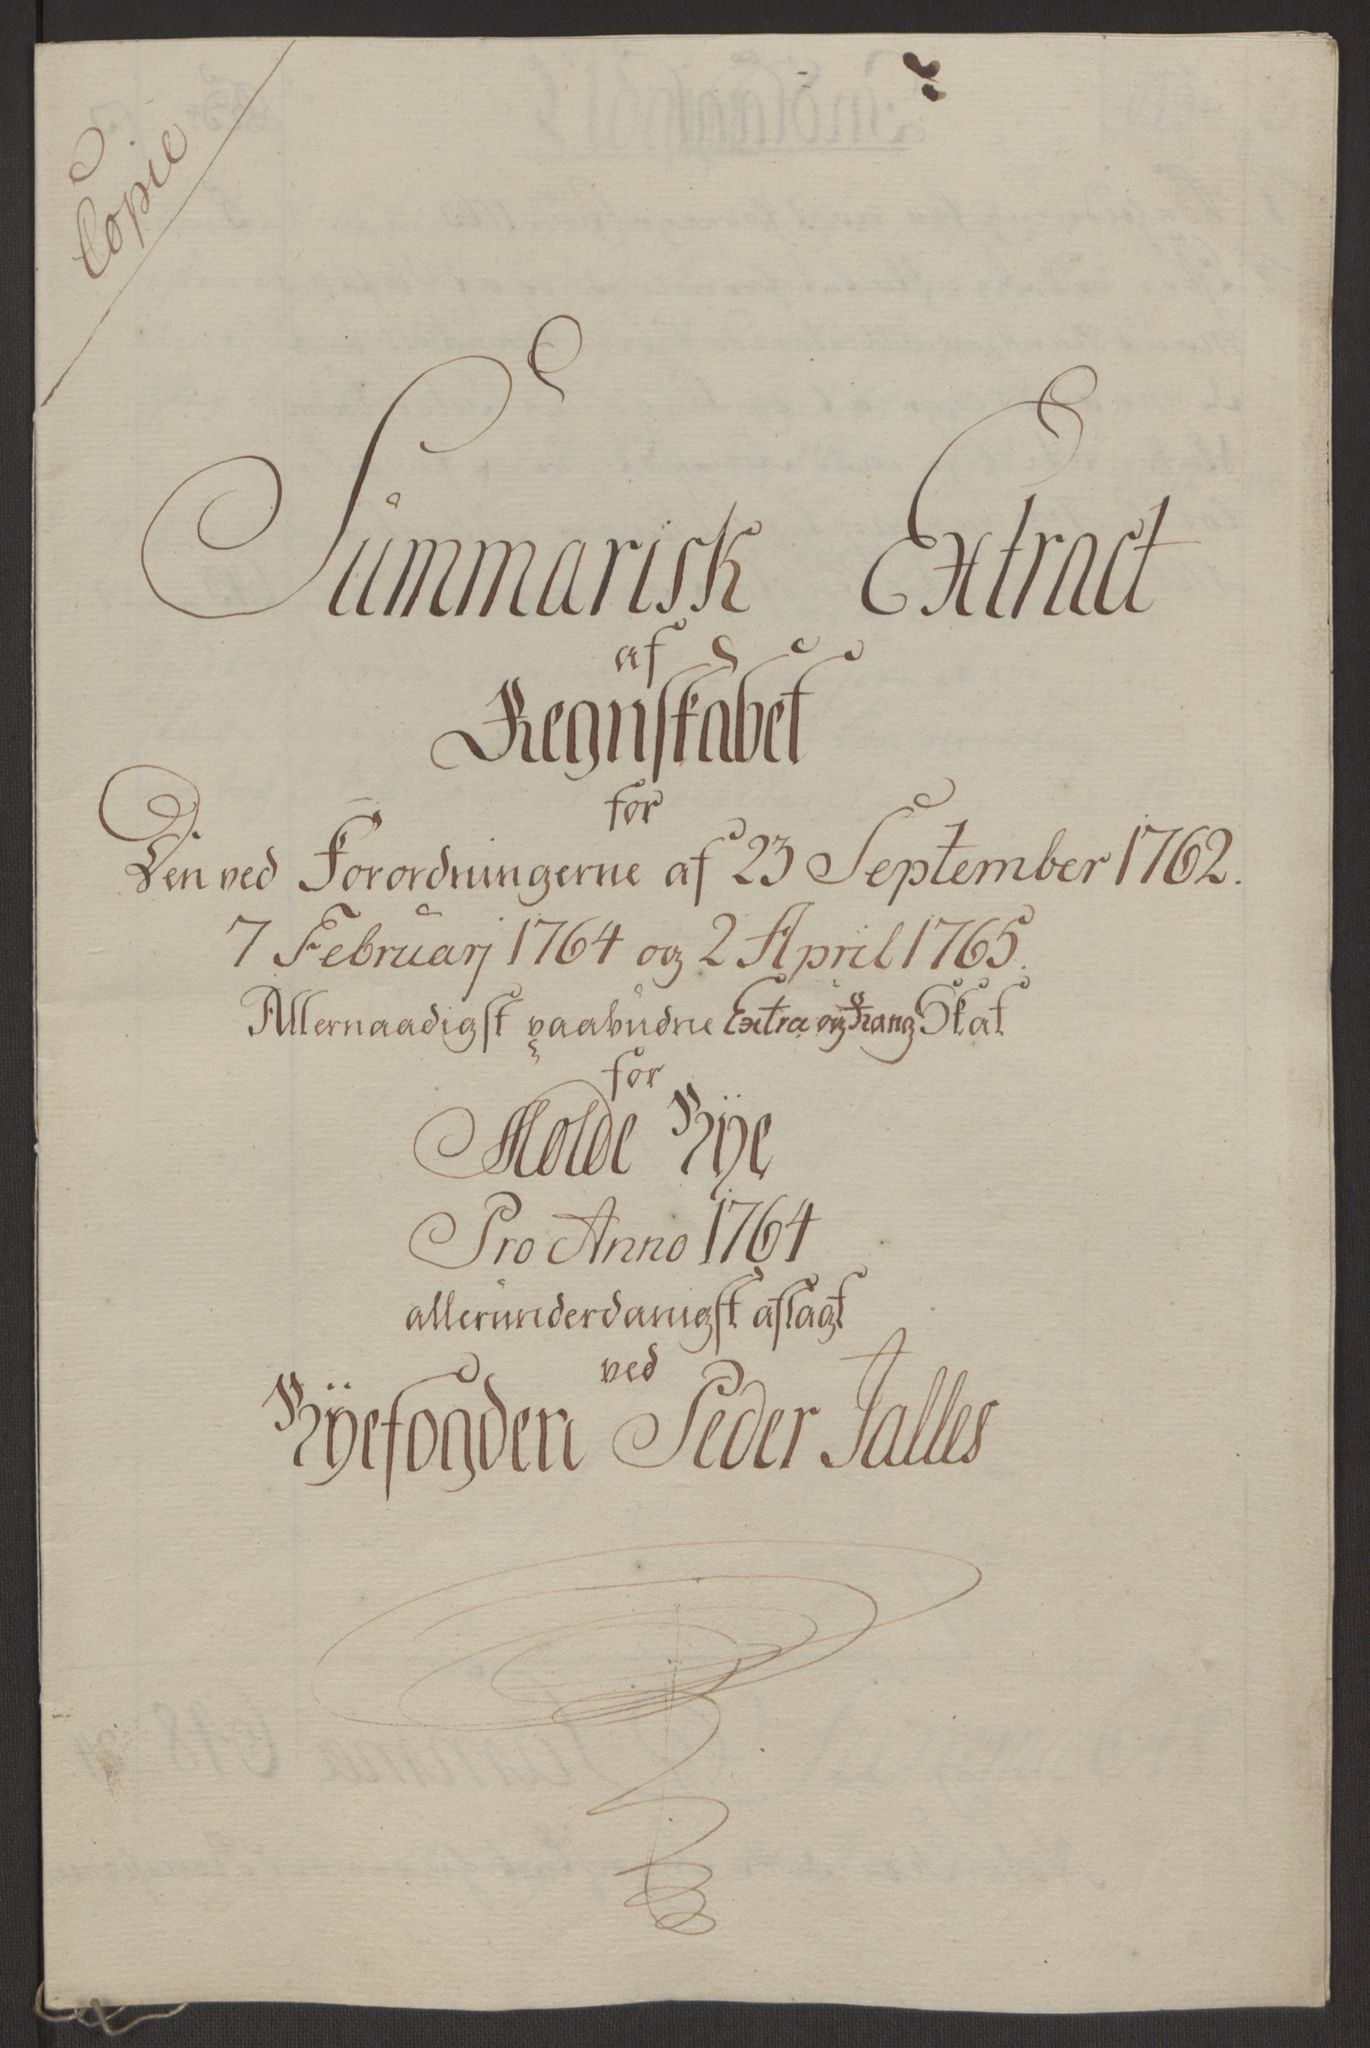 Copie
Summarisk Extract
af
Regnskabet
for
Den ved Forordningerne af 23 September 1762.
7 Februarj 1764 og 2 April 1765.
Allernaadigst paabudne Extra og Rang Skat
for
Molde Bÿe
Pro Anno 1764
allerunderdanigst aflagt
ved
Bÿefogden Peder Talles